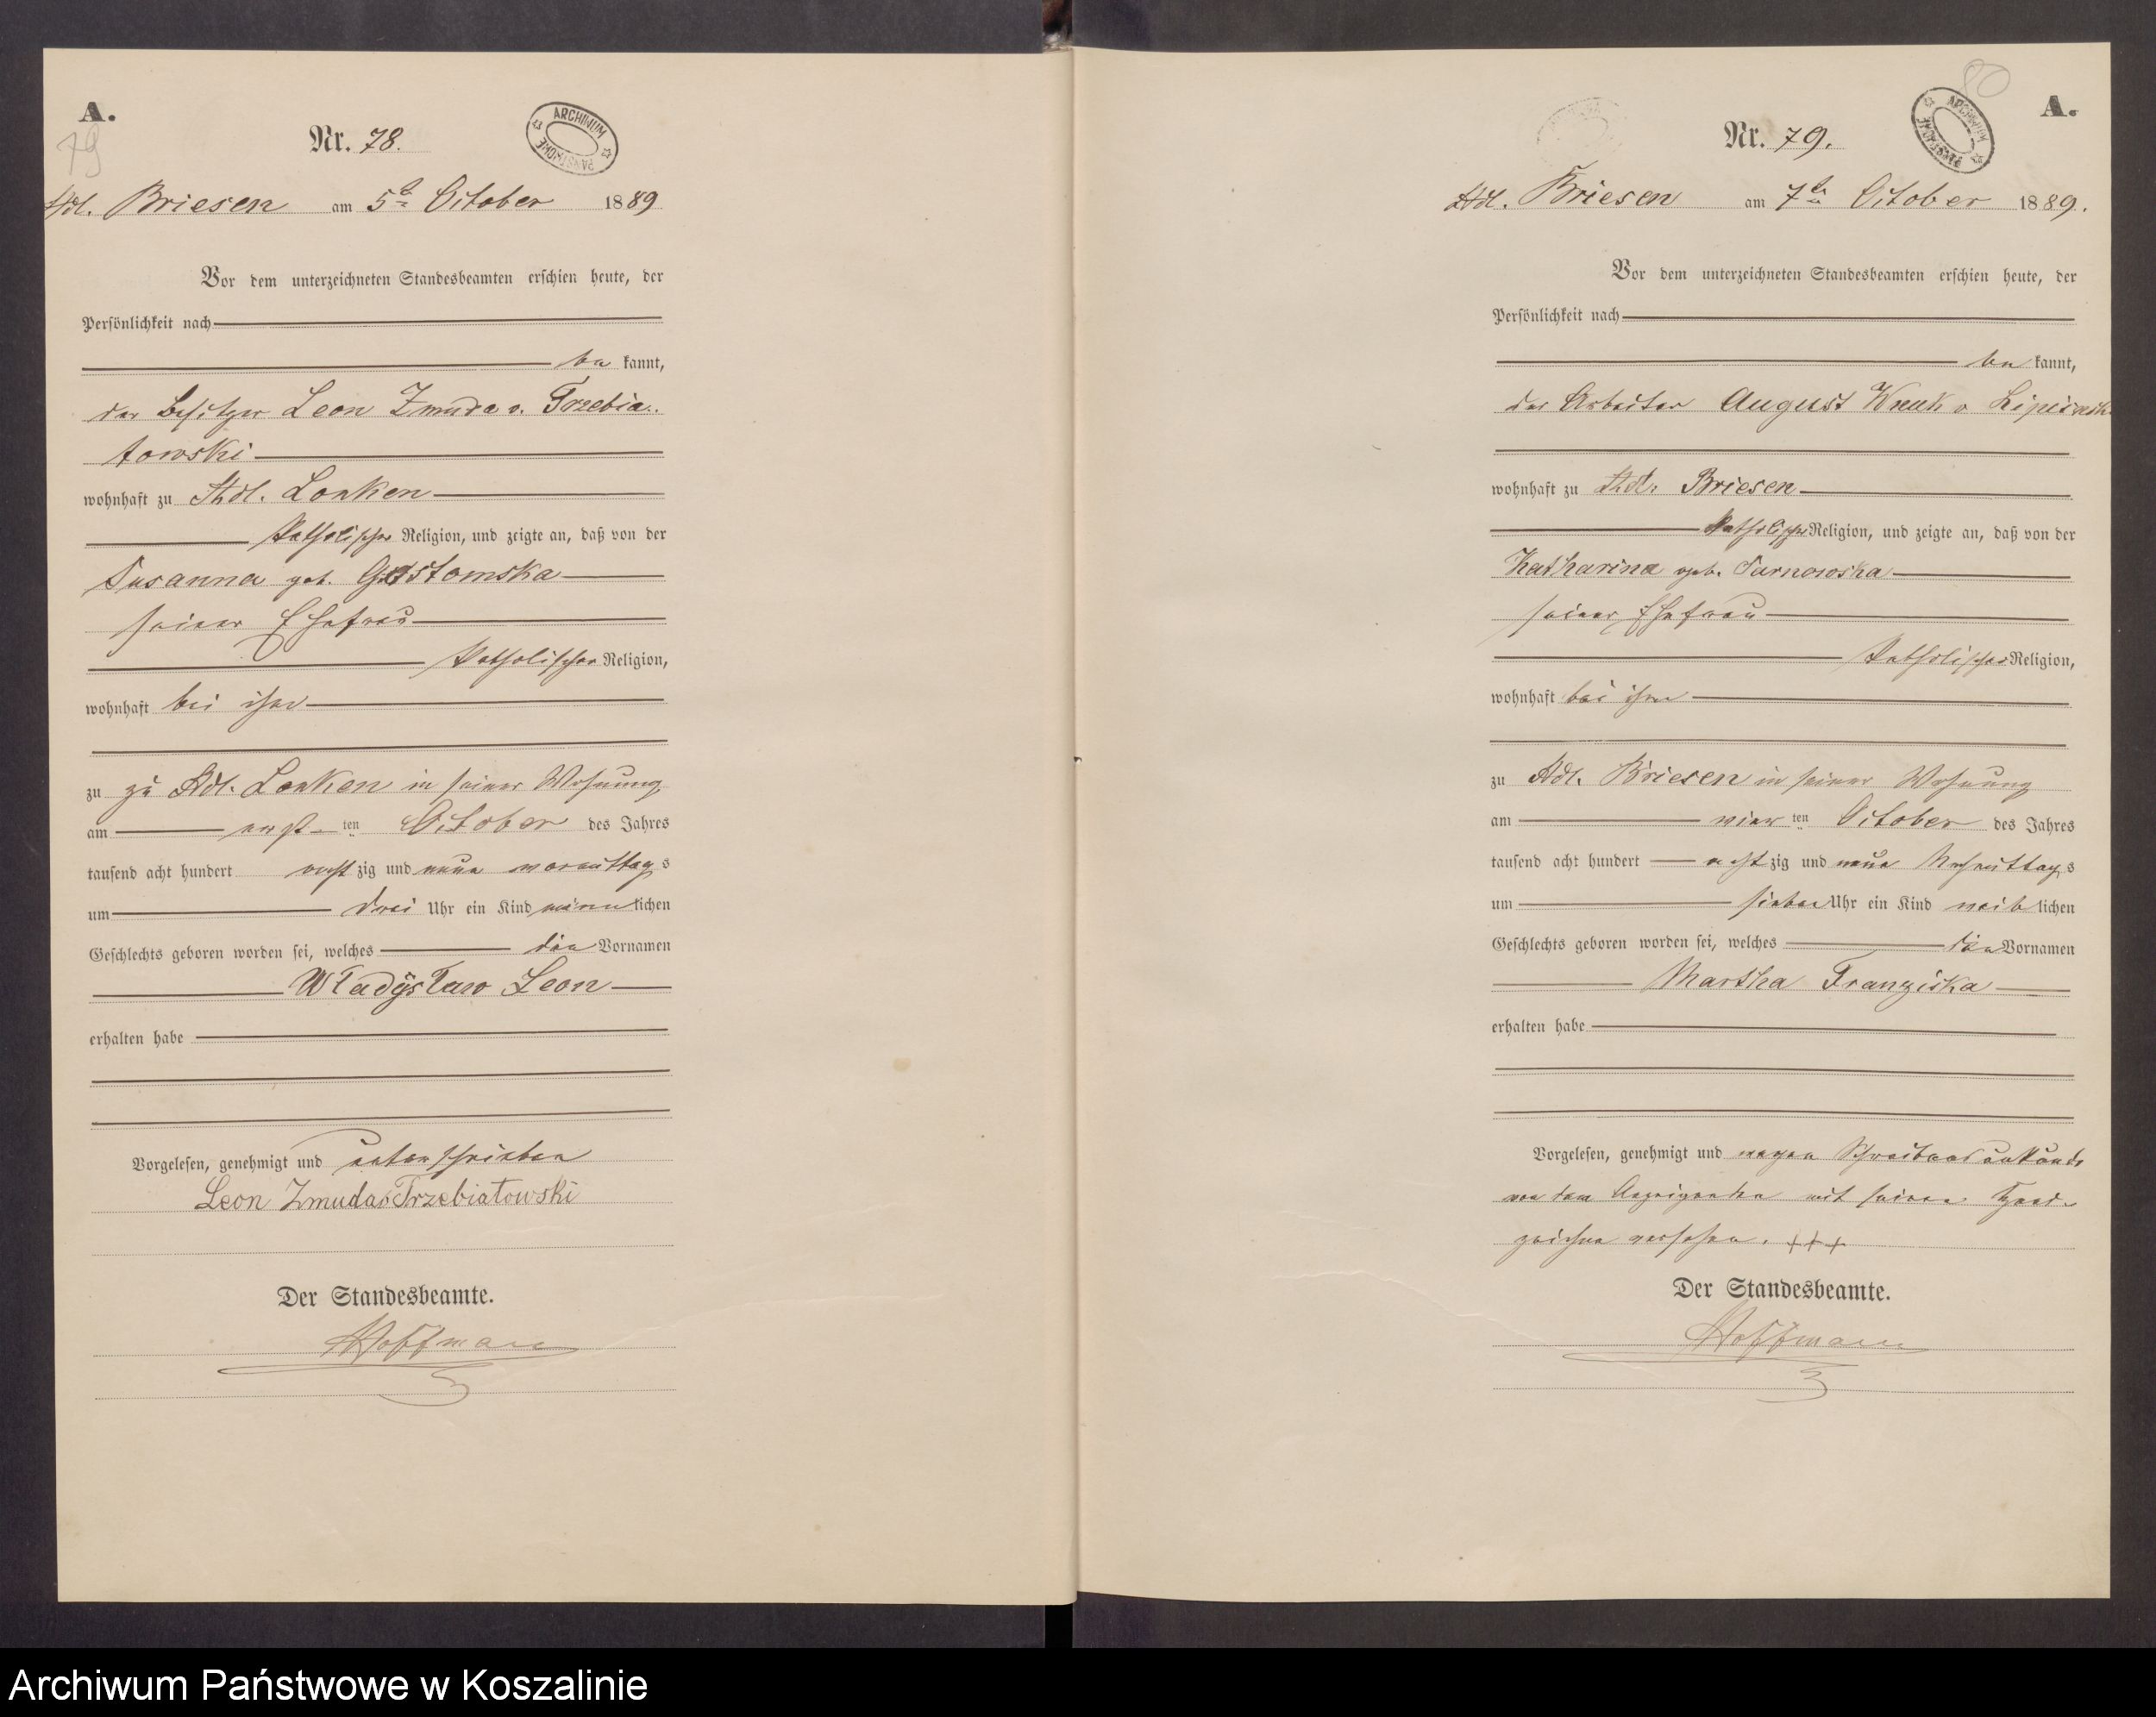 A.
79
Nr. 78.
ARCHIWUM PAŃSTWOWE
Adl. Briesen am 5t October 1889
Vor dem unterzeichneten Standesbeamten erschien heute, der
Persönlichkeit nach
be kannt,
der Besitzer Leon Zmuda v. Trzebia-
towski
wohnhaft zu Adl. Lonken
katholischer Religion, und zeigte an, daß von der
Susanna geb. Gostomska
seiner Ehefrau
katholischer Religion,
wohnhaft bei ihm
zu zu Adl. Lonken in seiner Wohnung
am ten October des Jahres
tausend acht hundert acht zig und neun vormittags
um drei Uhr ein Kind männlichen
Geschlechts geboren worden sei, welches die Vornamen
Władysław Leon
erhalten habe
Vorgelesen, genehmigt und unterschrieben
Leon Zmuda v Trzebiatowski
Der Standesbeamte.
Hoffmann
80
A.
Nr. 79.
ARCHIWUM PAŃSTWOWE
Adl. Briesen am 7ten October 1889.
Vor dem unterzeichneten Standesbeamten erschien heute, der
Persönlichkeit nach
be kannt,
der Arbeiter August Wnuk v
wohnhaft zu Adl. Briesen
katholischer Religion, und zeigte an, daß von der
Katharina geb. Tarnowska
seiner Ehefrau
katholischer Religion,
wohnhaft bei ihm
zu Adl. Briesen in seiner Wohnung
am vier ten October des Jahres
tausend acht hundert acht zig und neun Nachmittags
um sieben Uhr ein Kind weib lichen
Geschlechts geboren worden sei, welches die Vornamen
Martha Franziska
erhalten habe
Vorgelesen, genehmigt und wegen Schreibensunkunde
von dem Anzeigenden mit seinem Hand-
zeichen versehen. +++
Der Standesbeamte.
Hoffmann
Archiwum Państwowe w Koszalinie